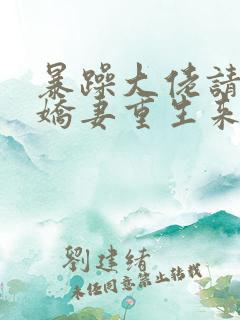 暴躁大佬請
嬌妻重生來
劉建緒
未經同意禁止轉載